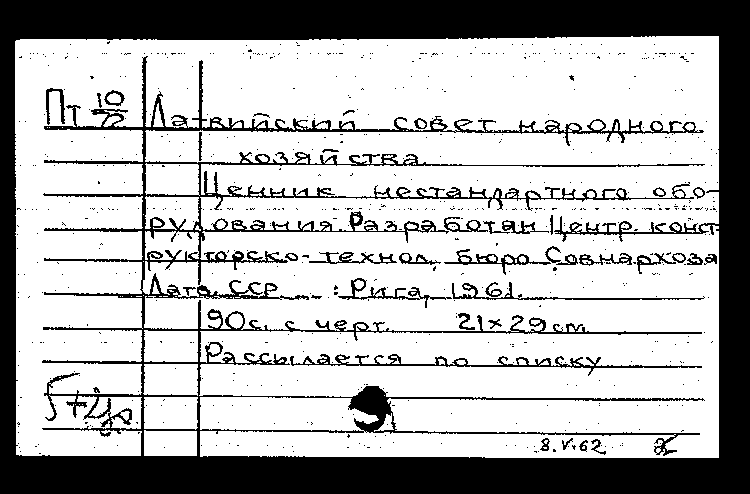 Пт 10/72 Латвийский совет народного
хозяйства.
Ценник нестандартного обо-
рудования. Разработан Центр. конст-
рукторско-технол. бюро Совнархоза
Латв. ССР : Рига, 1961.
90с. с черт. 21×29 cm
Рассылается по списку
8.V.62